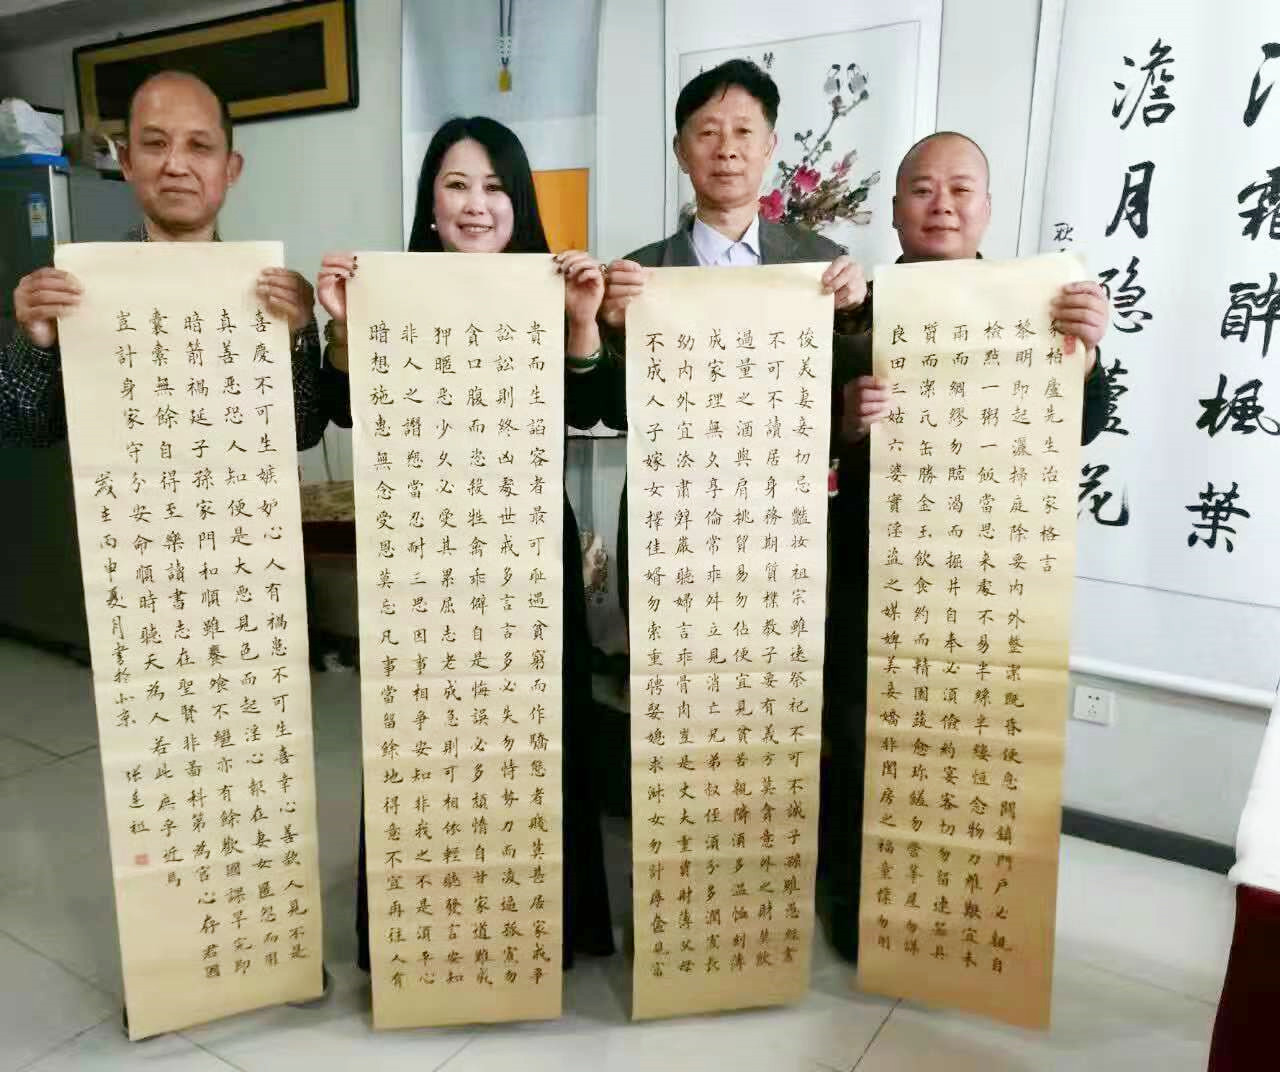 霜醉楓葉
澹月隐蘆花
秋
柏廬先生治家格言
黎明即起灑掃庭除要内外整潔既昏便息關鎖門戶必親自
檢點一粥一飯當思来處不易半絲半縷恒念物力維艱宜未
雨而綢繆勿臨渴而掘井自奉必須儉約宴客切勿留連器具
質而潔瓦缶勝金玉飲食約而精園蔬愈珍饈勿營華屋勿謀
良田三姑六婆實淫盗之媒婢美妾嬌非閨房之福童僕勿用
俊美妻妾切忌艷妝祖宗雖遠祭祀不可不誠子孫雖愚經書
不可不讀居身務期質樸教子要有義方莫貪意外之財莫飲
過量之酒與肩挑貿易勿佔便宜見貧苦親隣須多温恤刻薄
成家理無久享倫常乖舛立見消亡兄弟叔侄須分多潤寡長
幼内外宜法肅辭嚴聽婦言乖骨肉豈是丈夫重貲財薄父母
不成人子嫁女擇佳婿勿索重聘娶媳求淑女勿計厚奩見富
貴而生諂容者最可恥遇貧窮而作驕態者賤莫甚居家戒爭
訟訟則終凶處世戒多言言多必失勿恃勢力而凌逼孤寡勿
貪口腹而恣殺牲禽乖僻自是悔誤必多頹惰自甘家道難成
狎暱惡少久必受其累屈志老成急則可相依輕聽發言安知
非人之譖愬當忍耐三思因事相爭安知非我之不是須平心
暗想施惠無念受恩莫忘凡事當留餘地得意不宜再往人有
喜慶不可生嫉妒心人有禍患不可生喜幸心善欲人見不是
真善惡恐人知便是大惡見色而起淫心報在妻女匿怨而用
暗箭禍延子孫家門和順雖饔飧不繼亦有餘歡國課早完即
囊橐無餘自得至樂讀書志在聖賢非啚科第為官心存君國
豈計身家守分安命順時聽天為人若此庶乎近焉
歲在丙申夏月書於小京 張廷祖